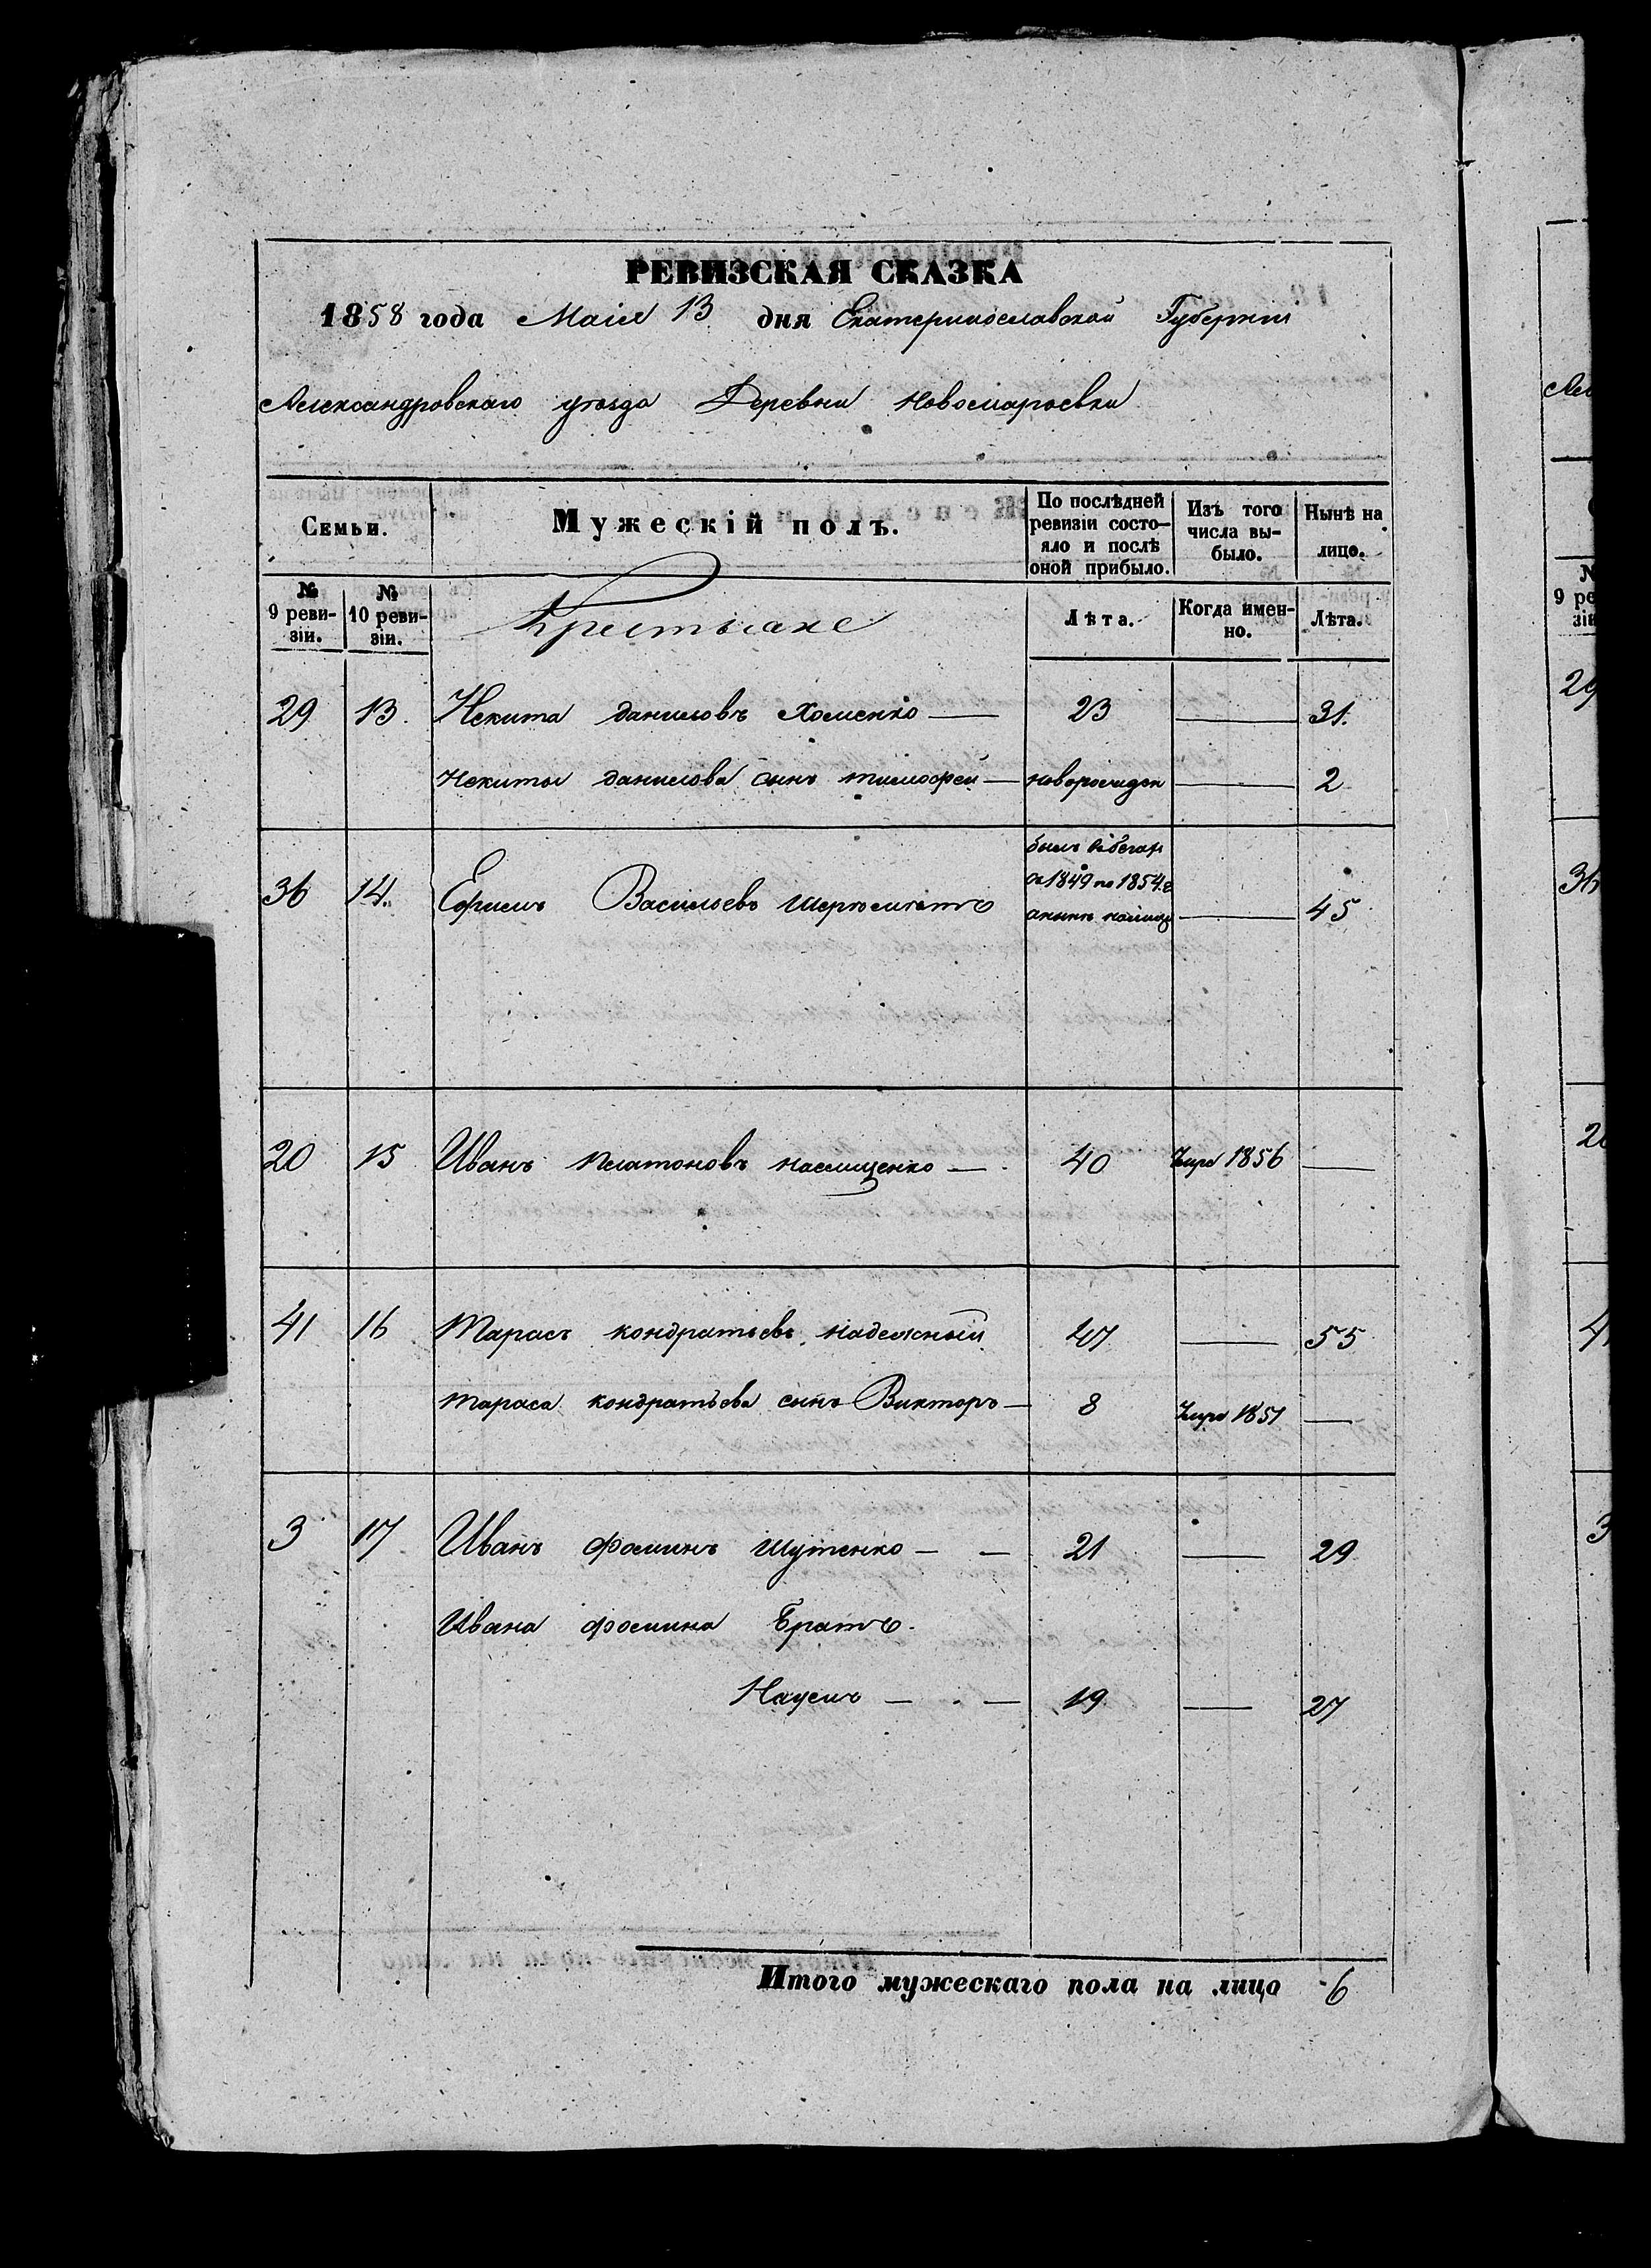 РЕВИЗСКАЯ СКАЗКА
1858 года Маія 13 дня Екатеринославской Губерніи
Александровскаго уѣзда Деревни Новомарьевки
Семьи.
Мужескій полъ.
По послѣдней ревизіи состо-
яло и послѣ
оной прибыло.
Изъ того
числа вы-
было.
Нынѣ на
лицо.
№
9 реви-
зіи.
№
10 реви-
зіи.
Крестьяне
Лѣта.
Когда имен-
но.
Лѣта.
29 13. Некита даниловъ Хоменко — 23 — 31.
Некиты данилова сынъ тимофей — новорожден — 2
былъ в бегах
съ 1849 по 1854.г
36 14. Ефимъ Васильевъ — 45
20 15 Иванъ Платоновъ — 40 умре 1856 —
41 16 Тарасъ кондратьевъ надежный 47 — 55
тараса кондратьева сынъ Викторъ — 8 умре 1851 —
3 17 Иванъ фоминъ Шутенко — — 21 — 29
Ивана фомина Братъ.
Наумъ — — 19 — 27
Итого мужескаго пола на лицо 6